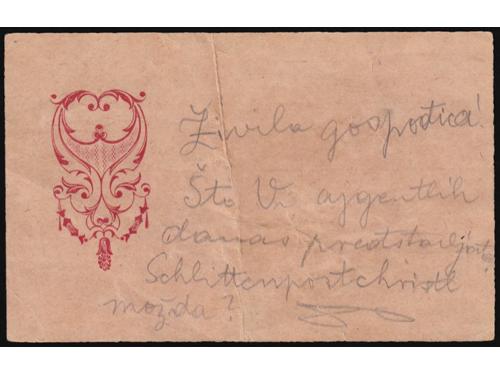 Živila gospođica!
Što Vi ajgentlih
danas predstavljate
Schlittenpostchristl
možda?